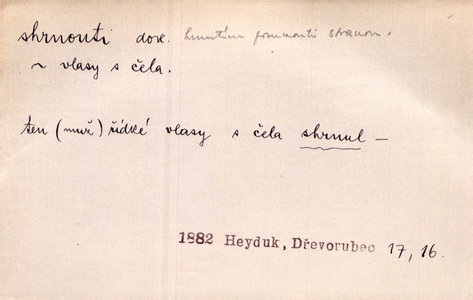 shrnouti dok. hnutím posunouti stranou.
~ vlasy s čela.
ten (muž) řídké vlasy s čela shrnul —
1882 Heyduk, Dřevorubec 17, 16.